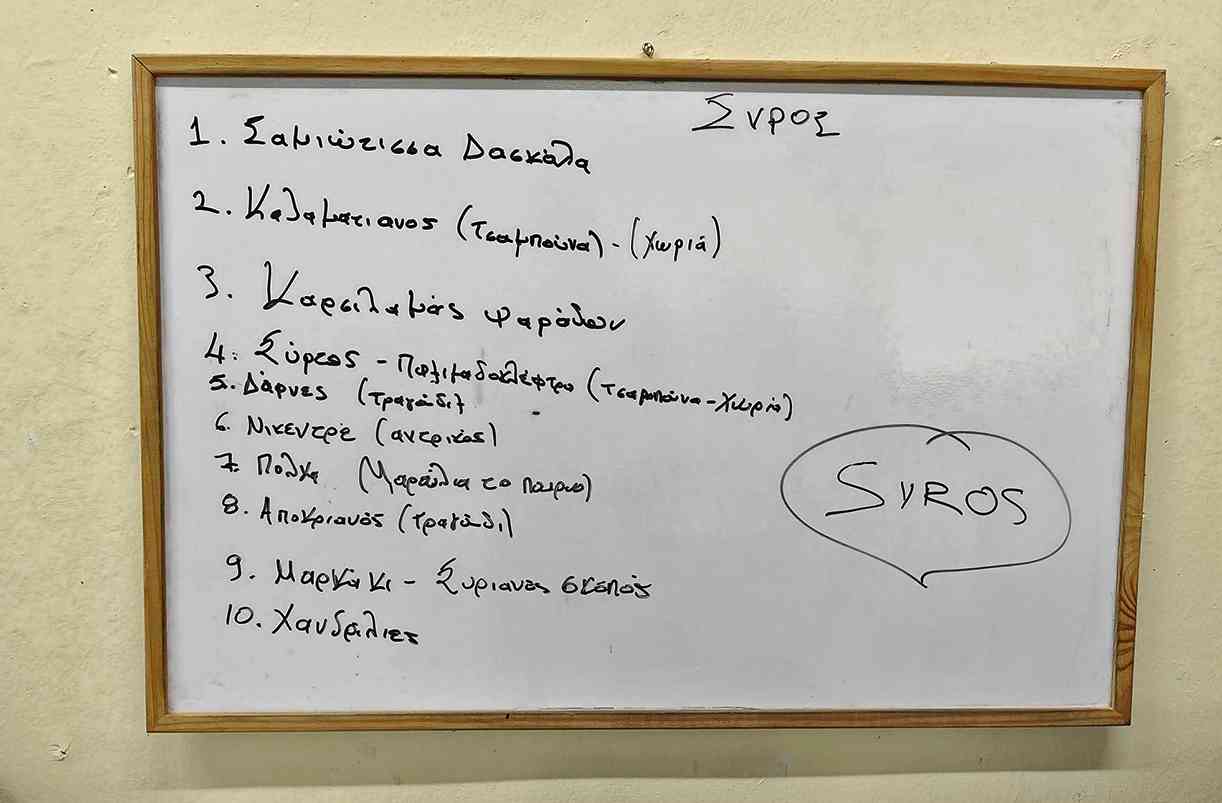 Συρος
1. Σαμιώτισσα Δασκάλα
2. Καλαματιανος (Τσαμπούνα) - (Χωριά)
3. Καρσιλαμάς ψαράδων
4. Σύρτος - Παξιμαδοκλέφτρα (Τσαμπούνα - Χωριά)
5. Δάρνες (τραγούδι)
6. Νικεντρέ (αντρικός)
7. Πολκα (Μαρούλια το
8. Αποκριανός (τραγούδι)
9. Μαρκάκι - Συριανός σκοπός
10. Χανδριλιες
SYROS